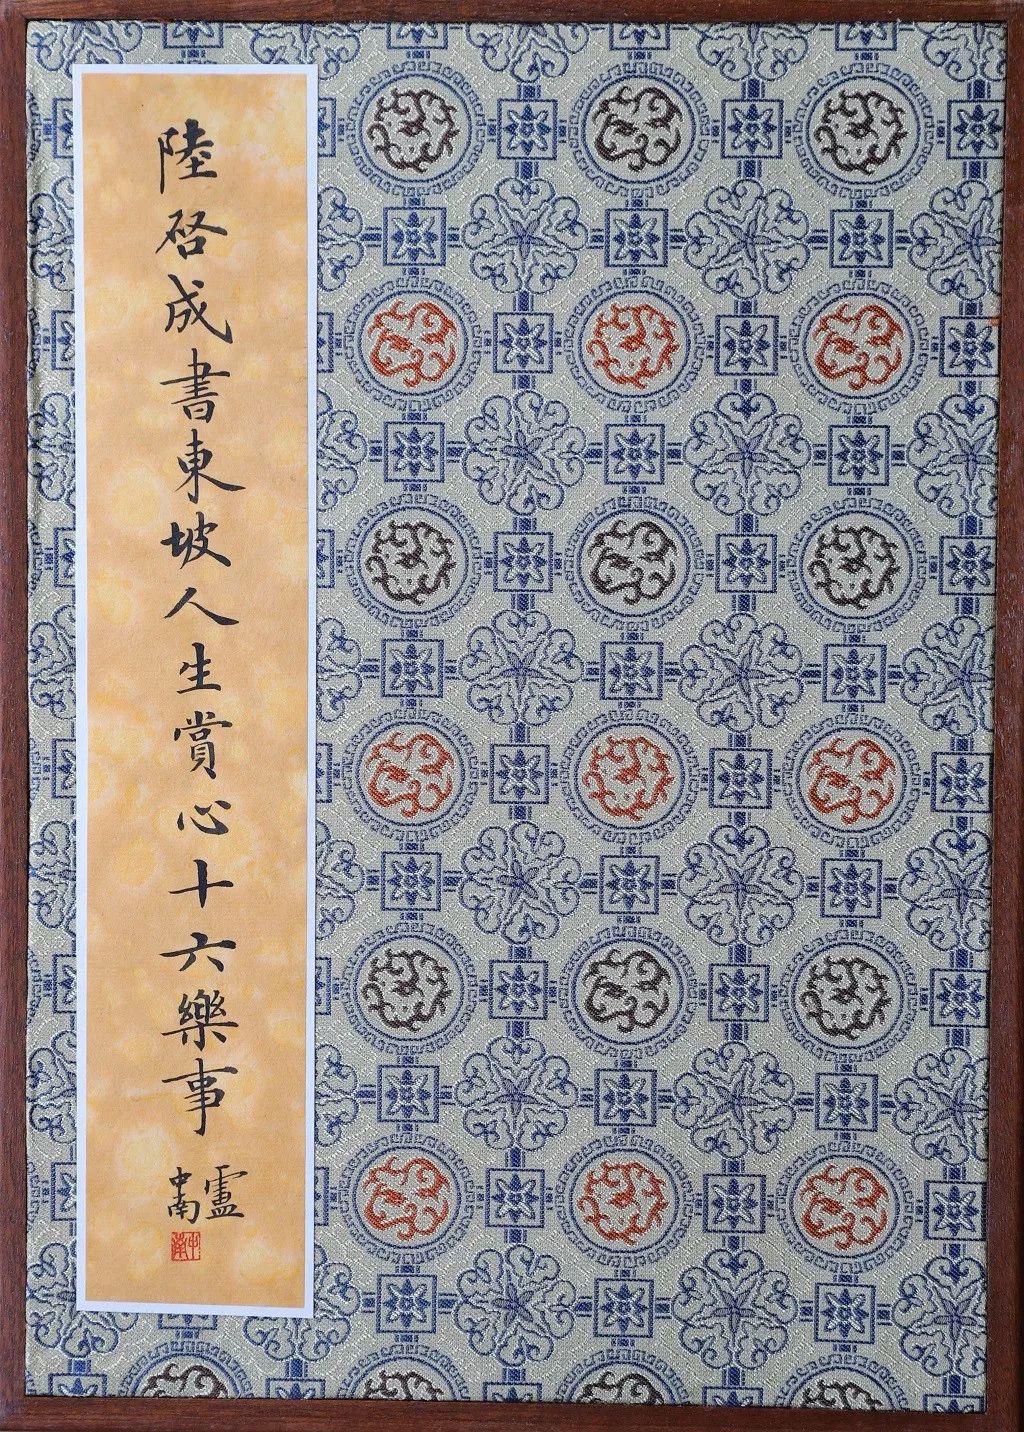 陸啓成書東坡人生賞心十六樂事
盧中南
中南